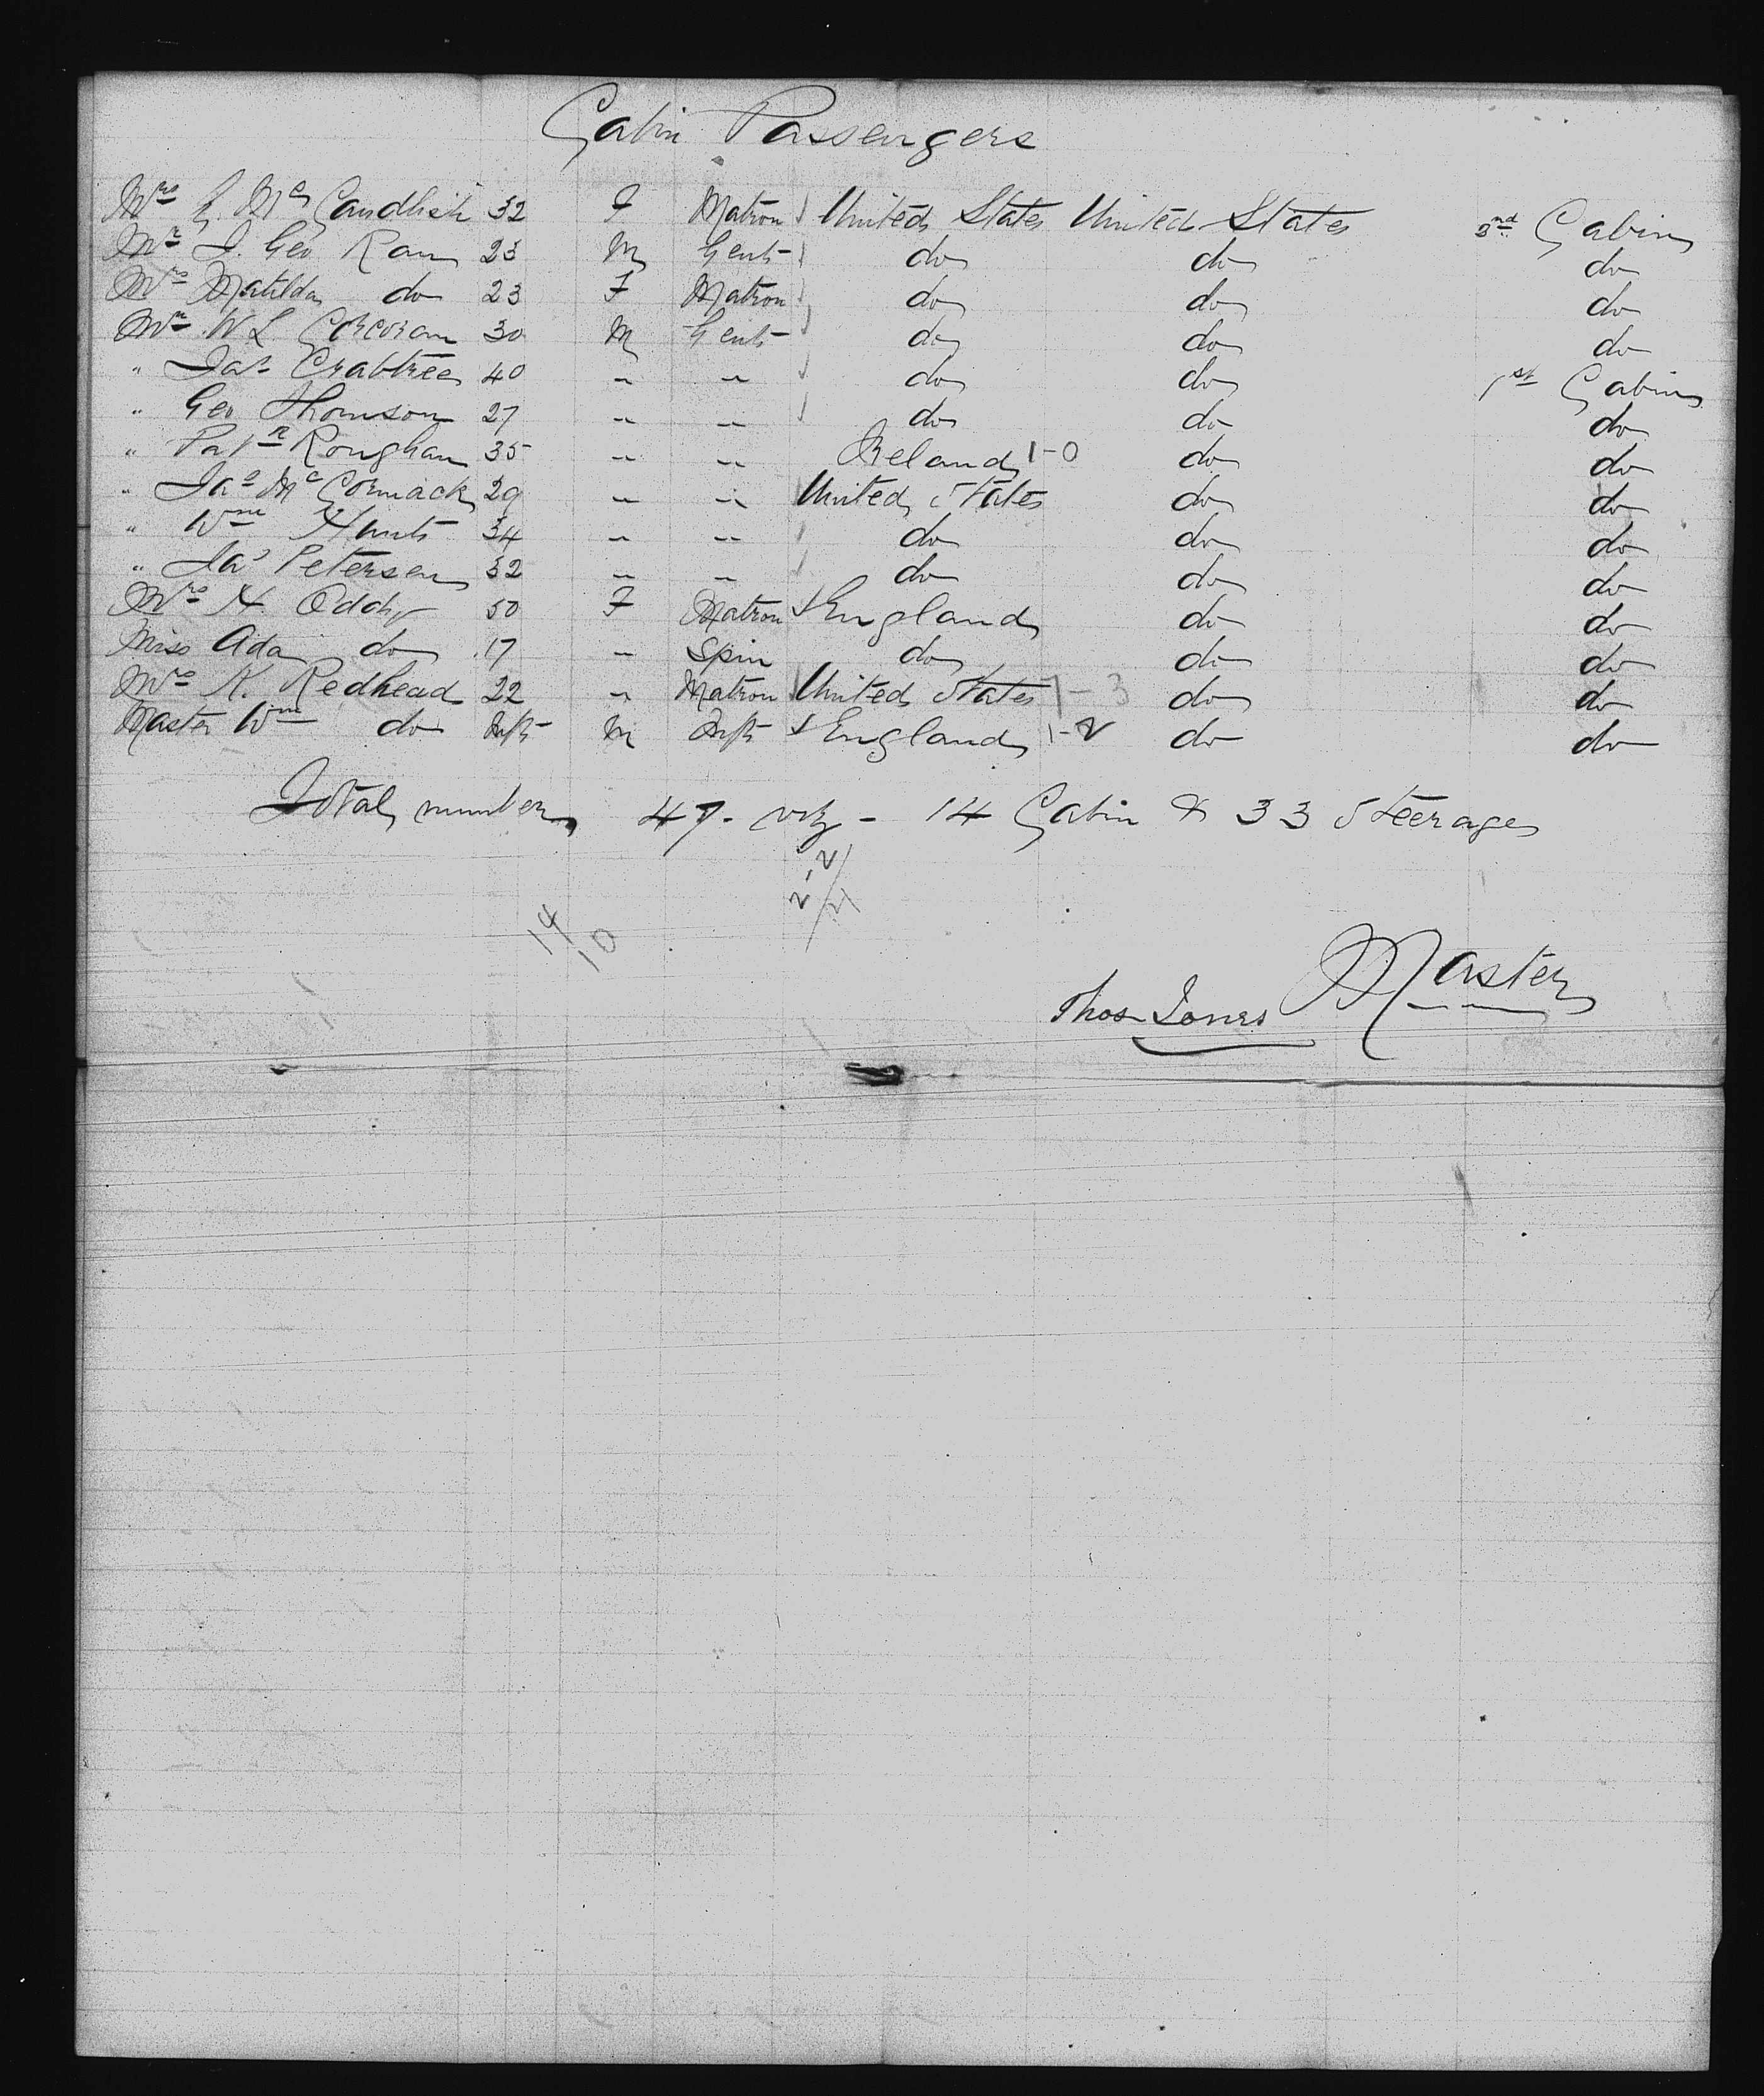 Cabin Passengers
Mrs E. McCandlish 32 F Matron United States United States 2nd Cabin
Mr J. Geo Ram 23 M Gent do do do
Mrs Matilda do 23 F Matron do do do
Mr W L Corcoran 30 M Gent do do do
" Jas Crabtree 40 " " do do 1st Cabin
" Geo Thomson 27 " " do do do
" Patk Roughan 35 " " Ireland 1-0 do do
" Jas McCormack 29 " " United States do do
" Wm Hunt 34 " " do do do
" Jas Petersen 32 " " do do do
Mrs H. Oddy 50 F Matron England do do
Miss Ada do 17 " Spin do do do
Mrs K. Redhead 22 " Matron United States 1-3 do do
Master Wm do Inft M Inft England 1-2 do do
Total number 47 - viz - 14 Cabin & 33 Steerage
14/10
Thos Jones Master